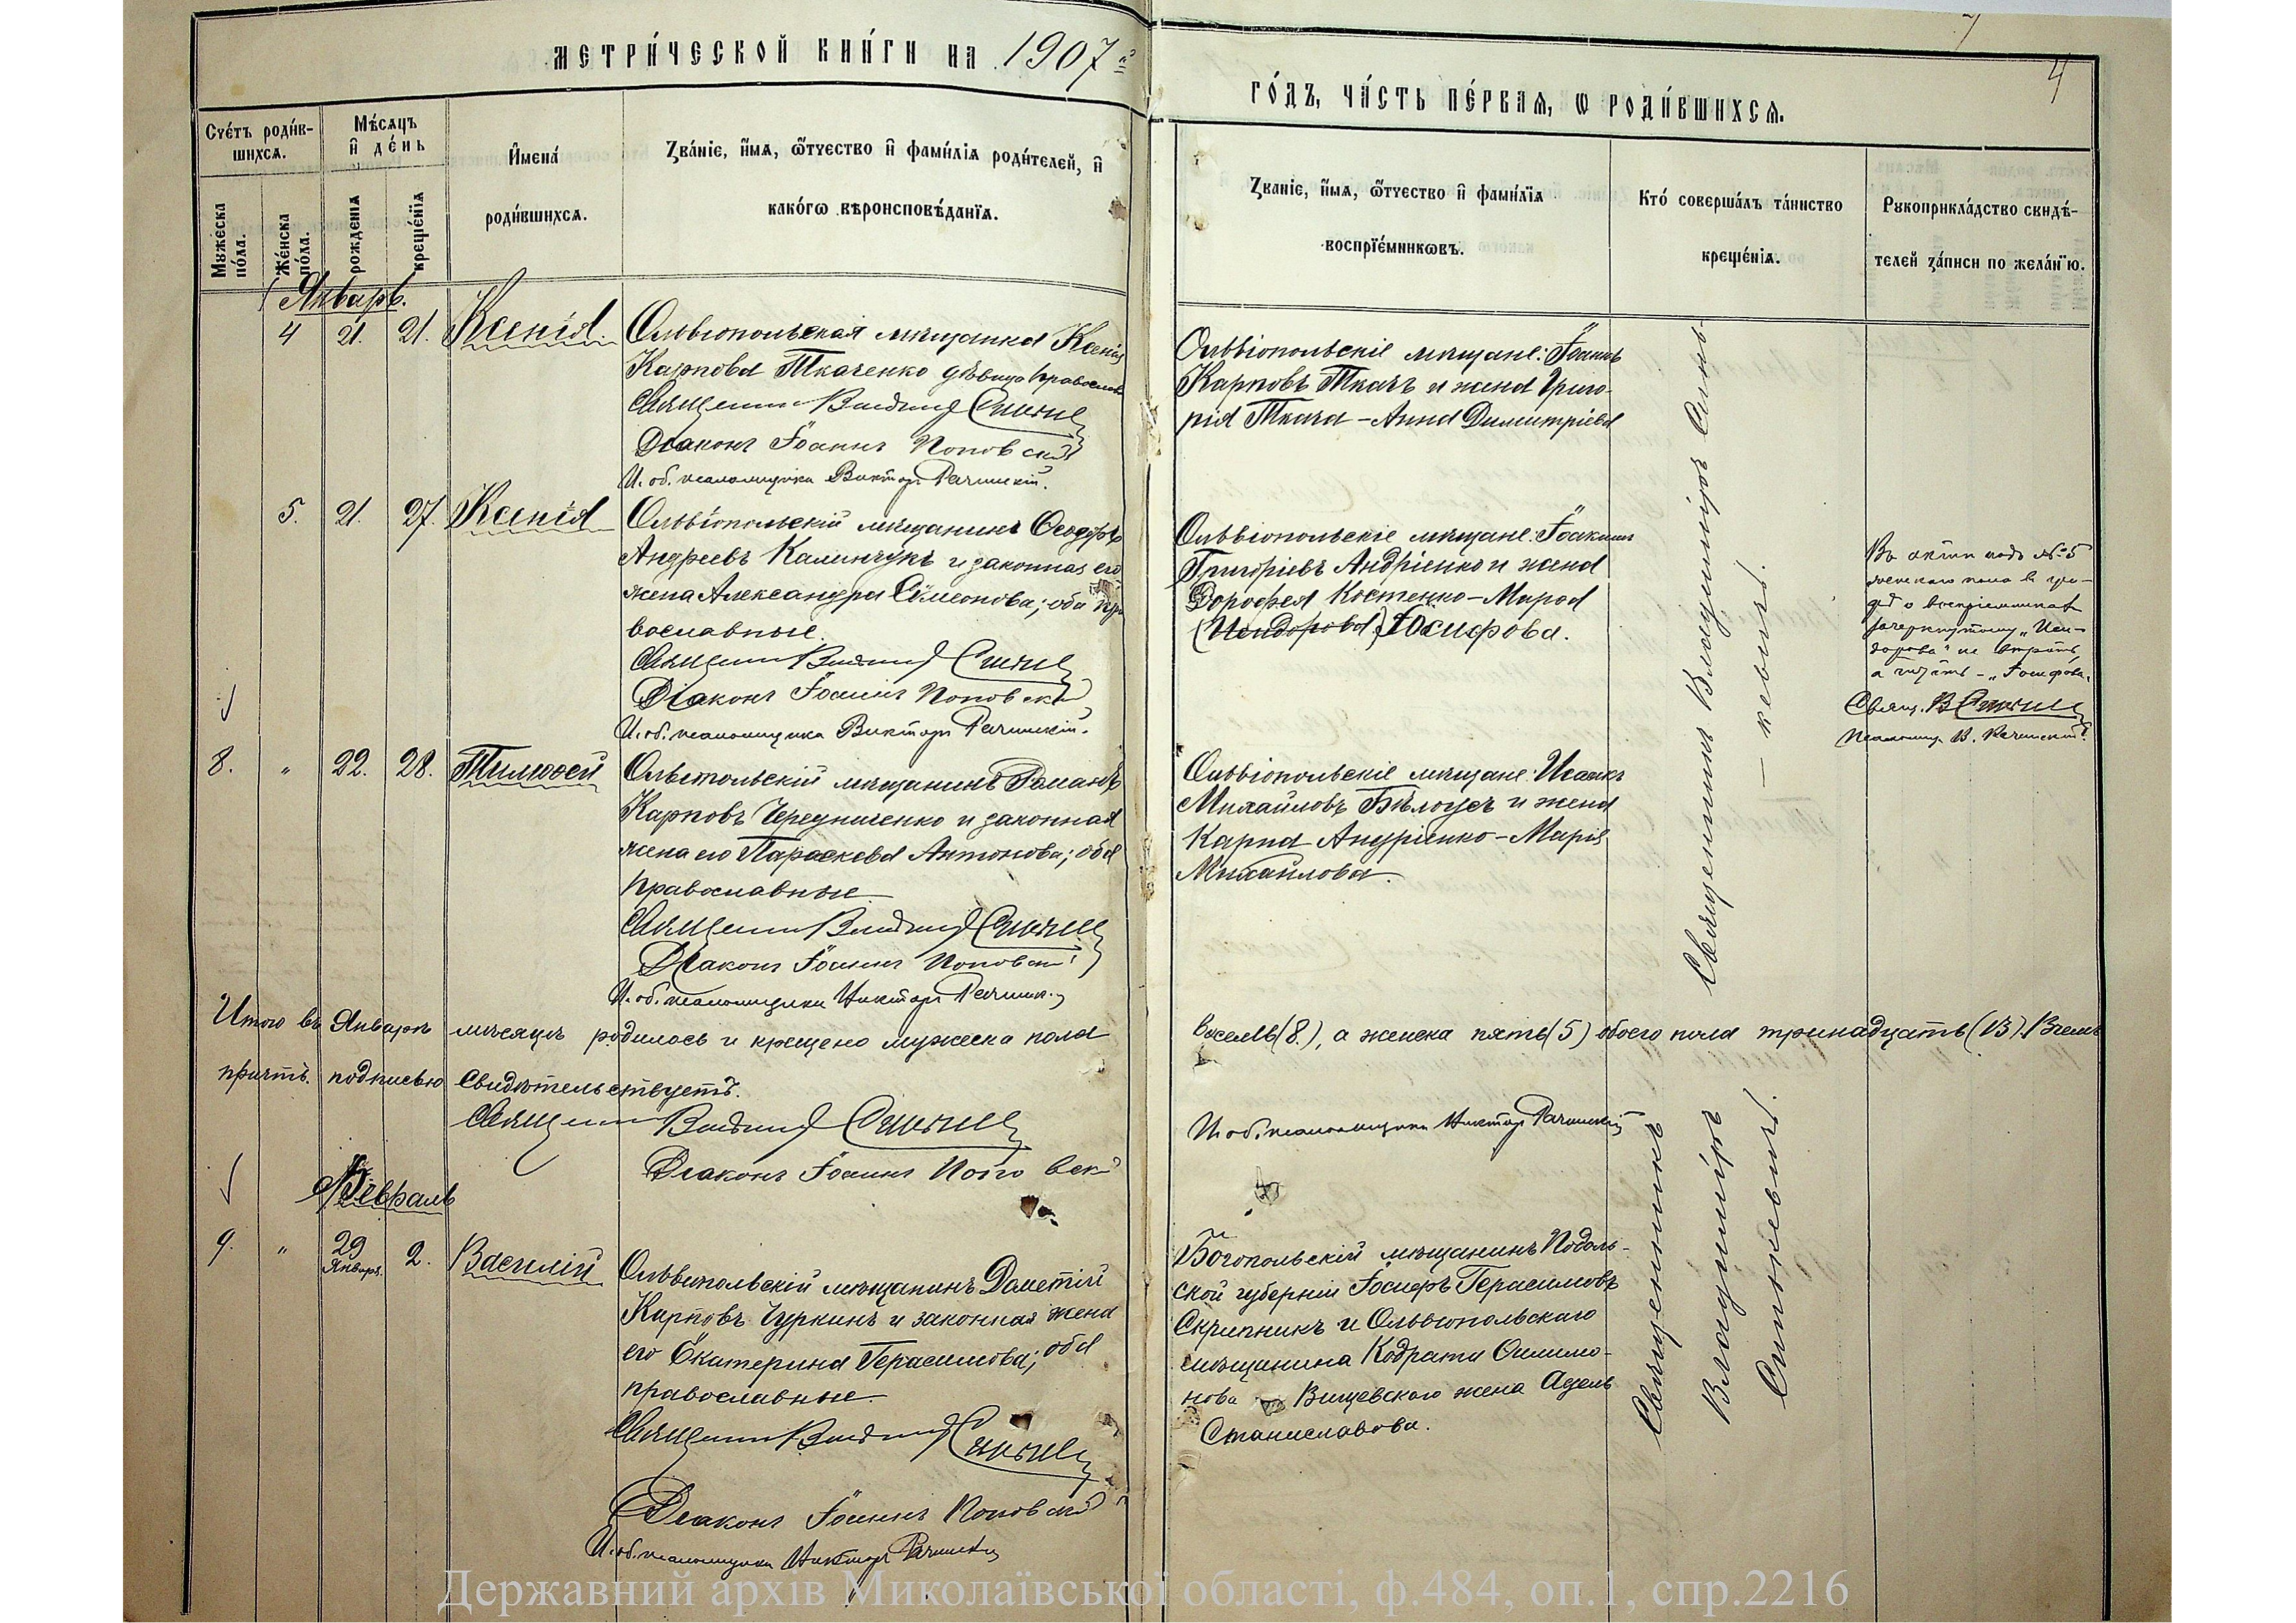 МЕТРИ́ЧЕСКОЙ КНИ́ГИ НА 1907й
ГО́ДЪ, ЧА́СТЬ ПЕ́РВАѦ, Ѡ РОДИ́ВШИХСѦ.
4
Сче́тъ роди́в-
шихсѧ.
Мꙋ́жеска
по́ла.
Же́нска
по́ла.
Мѣ́сѧцъ
и҆ де́нь
рожде́нїѧ
креще́нїѧ
И҆мена́
роди́вшихсѧ.
Зва́нїе, и҆́мѧ, ѻ҆́тчество и҆ фами́лїѧ роди́телей, и҆
како́гѡ вѣроисповѣ́данїѧ.
Зва́нїе, и҆́мѧ, ѻ҆́тчество и҆ фами́лїѧ
воспрїе́мникѡвъ.
Кто́ соверша́лъ та́инство
креще́нїѧ.
Рꙋкоприкла́дство свидѣ́-
телей за́писи по жела́нїю.
Январь.
4 21. 21. Ксенія
Ольвіопольская мѣщанка Ксенія
Карпова Ткаченко дѣвица православн
Священн Владимір Синьке
Діаконъ Іоаннъ Поповскій
И. об. псаломщика Викторъ Рачинскій.
Ольвіопольскіе мѣщане: Іоаннъ
Карповъ Ткачъ и жена Григо-
рія Ткача – Анна Димитріева
Священникъ Владиміръ Синь-
– кевичъ.
5. 21. 27. Ксенія
Ольвіопольскій мѣщанинъ Ѳеодоръ
Андреевъ Калинчукъ и законная его
жена Александра Симеонова; оба пра
вославные.
Священн Владимір Синьке
Діаконъ Іоаннъ Поповскій
И. об. псаломщика Викторъ Рачинскій.
Ольвіопольскіе мѣщане: Іоакимъ
Григоріевъ Андріенко и жена
Дорофея Костенко – Марѳа
(Исидорова) Іосифова.
Въ актѣ подъ №5
женскаго пола в гра-
фѣ о воспріемникахъ
зачеркнутому „Иси-
дорова" не вѣрить,
а читать – „Іосифова.
Свящ. В Синьке
Псаломщ. В. Рачинскій
8. „ 22. 28. Тимоѳей
Ольвіопольскій мѣщанинъ Романъ
Карповъ Чередниченко и законная
жена его Параскева Антонова; оба
православные.
Священн Владимір Синьке
Діаконъ Іоаннъ Поповскі
И. об. псаломщика Викторъ Рачинск.
Ольвіопольскіе мѣщане: Исаакъ
Михайловъ Бѣлоусъ и жена
Карпа Андріенко – Марія
Михайлова.
Итого въ Январѣ мѣсяцѣ родилось и крещено мужеска пола восемь (8.), а женска пять (5) обоего пола тринадцать (13) В чемъ
причтъ подписью свидѣтельствуетъ.
Священн Владимір Синьке
Діаконъ Іоаннъ Поповскі
И. об. псаломщика Викторъ Рачинскій
Февраль
9. „ 29 Января. 2. Василій
Ольвіопольскій мѣщанинъ Дометій
Карповъ Чуркинъ и законная жена
его Екатерина Герасимова; оба
православные.
Священн Владимір Синьке
Діаконъ Іоаннъ Поповскій
И. об. псаломщика Викторъ Рачинскі
Богопольскій мѣщанинъ Подоль-
ской губерніи Іосифъ Герасимовъ
Скрипникъ и Ольвіопольскаго
мѣщанина Кодрата Филимо-
нова Вищевскаго жена Адель
Станиславова.
Священникъ
Владиміръ
Синькевичъ.
Державний архів Миколаївської області, ф.484, оп.1, спр.2216